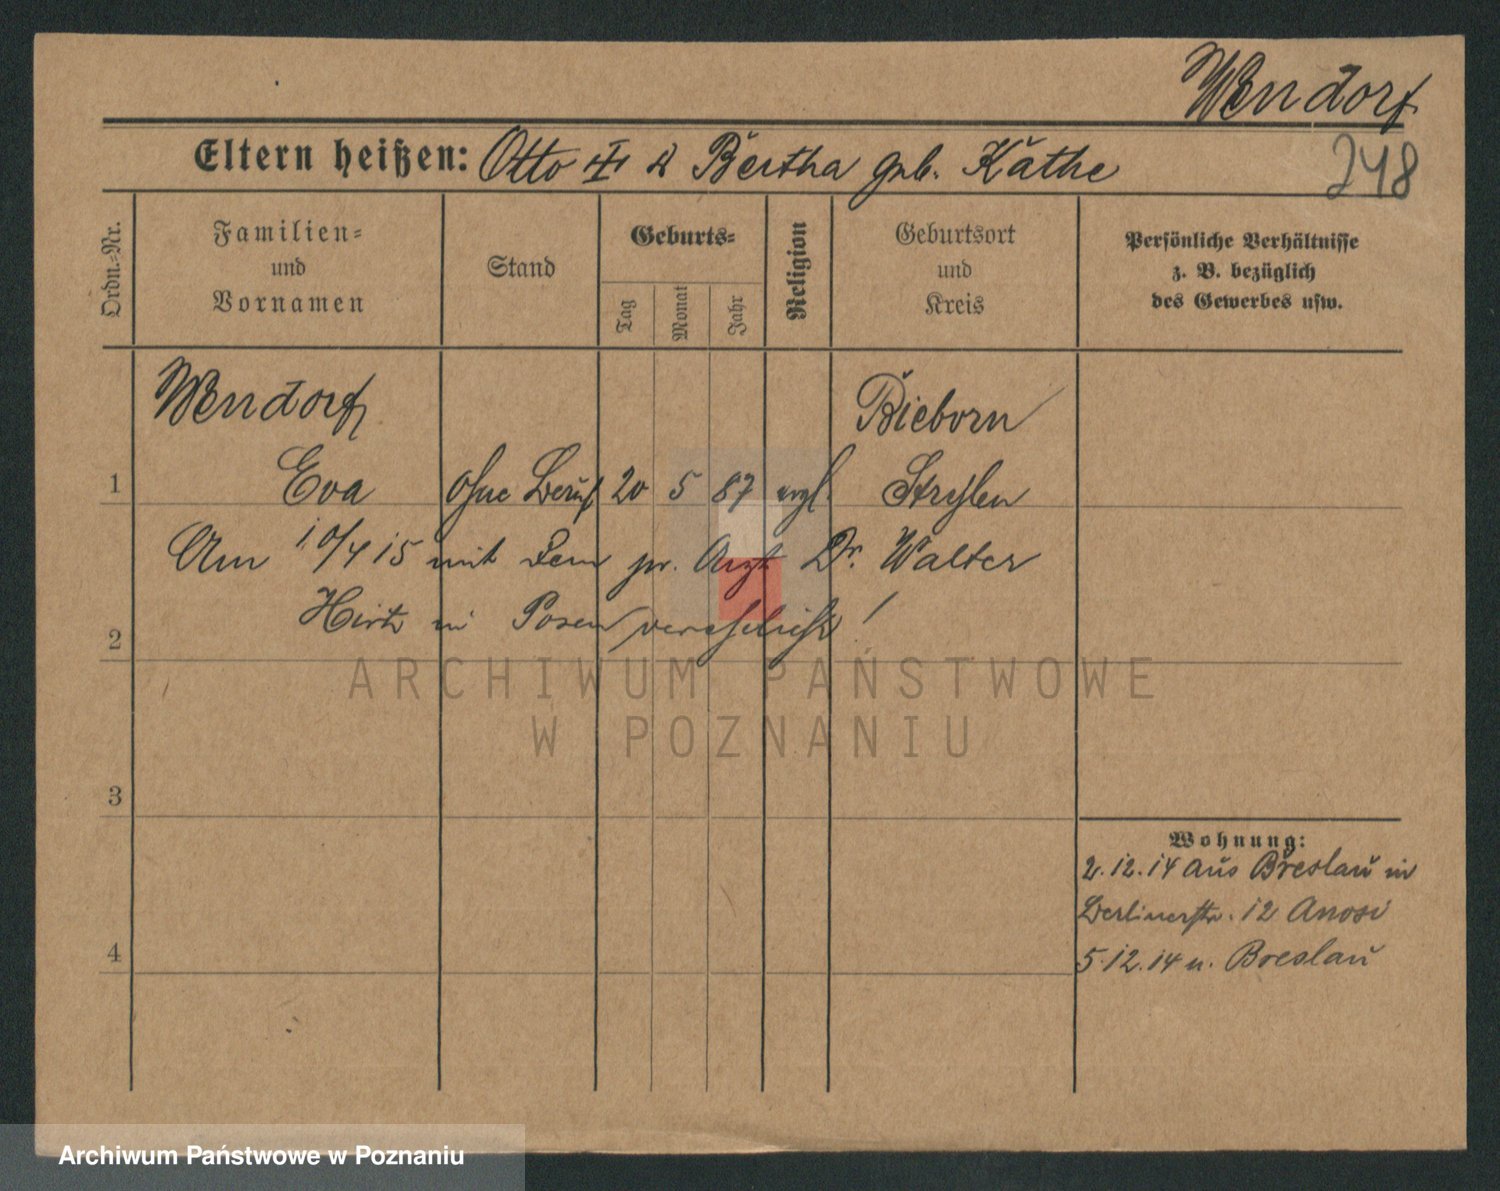 Wendorf
Eltern heißen: Otto & Bertha geb. Käthe
248
Ordn.-Nr.
Familien-
und
Vornamen
Stand
Geburts-
Tag
Monat
Jahr
Religion
Geburtsort
und
Kreis
Persönliche Verhältnisse
z. B. bezüglich
des Gewerbes usw.
Wendorf
Bieborn
1 Eva ohne Beruf 20 5 87 evgl. Strehlen
Am 10/4 15 mit dem pr. Arzt Dr. Walter
2 in Posen
ARCHIWUM PAŃSTWOWE
W POZNANIU
3
Wohnung:
2.12.14 aus Breslau in
Berlinerstr. 12
4
5.12.14 n. Breslau
Archiwum Państwowe w Poznaniu